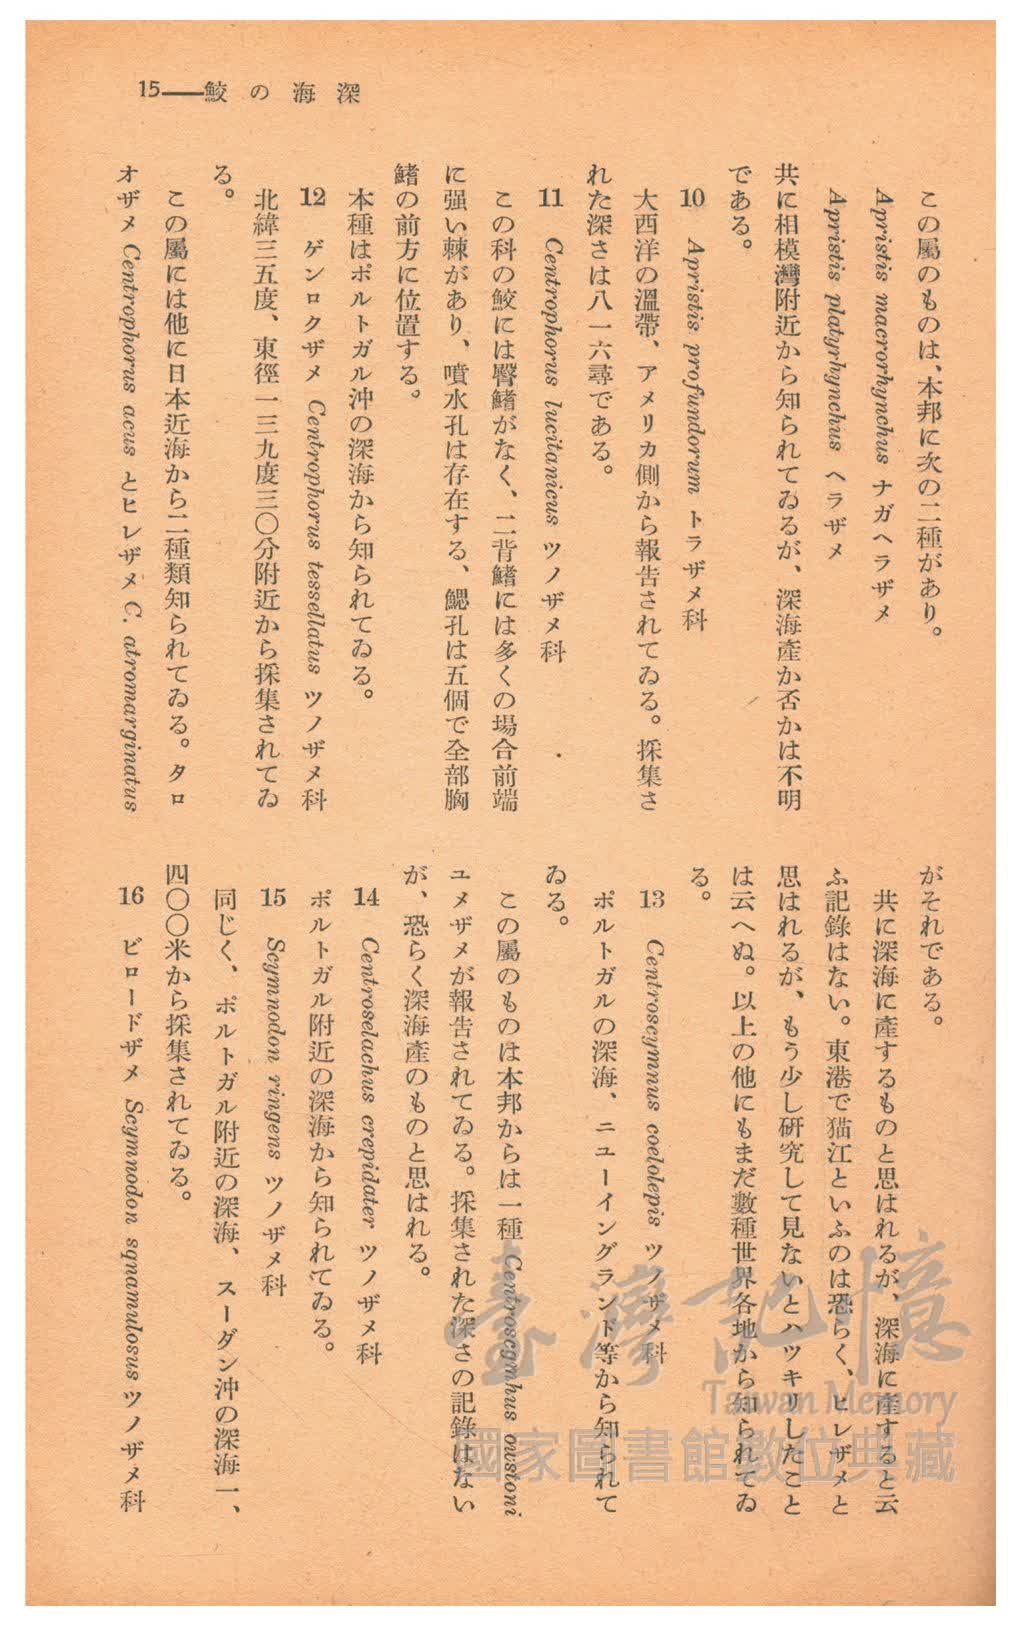 15——鮫の海深
この屬のものは、本邦に次の二種があり。
Apristis macrorhynchus ナガヘラザメ
Apristis platyrhynchus ヘラザメ
共に相模灣附近から知られてゐるが、深海產か否かは不明
である。
10 Apristis profundorum トラザメ科
大西洋の溫帶、アメリカ側から報告されてゐる。採集さ
れた深さは八一六尋である。
11 Centrophorus lucitanicus ツノザメ科
この科の鮫には臀鰭がなく、二背鰭には多くの場合前端
に强い棘があり、噴水孔は存在する、鰓孔は五個で全部胸
鰭の前方に位置する。
本種はポルトガル沖の深海から知られてゐる。
12 ゲンロクザメ Centrophorus tessellatus ツノザメ科
北緯三五度、東徑一三九度三〇分附近から採集されてゐ
る。
この屬には他に日本近海から二種類知られてゐる。タロ
オザメ Centrophorus acus とヒレザメ C. atromarginatus
がそれである。
共に深海に產するものと思はれるが、深海に產すると云
ふ記錄はない。東港で猫江といふのは恐らく、ヒレザメと
思はれるが、もう少し硏究して見ないとハツキリしたこと
は云へぬ。以上の他にもまだ數種世界各地から知られてゐ
る。
13 Centroscymnus coelolepis ツノザメ科
ポルトガルの深海、ニユーイングランド等から知られて
ゐる。
この屬のものは本邦からは一種 Centroscgmhus owstoni
ユメザメが報告されてゐる。採集された深さの記錄はない
が、恐らく深海產のものと思はれる。
14 Centroselachus crepidater ツノザメ科
ポルトガル附近の深海から知られてゐる。
15 Scymnodon ringens ツノザメ科
同じく、ポルトガル附近の深海、スーダン沖の深海一、
四〇〇米から採集されてゐる。
16 ビロードザメ Scymnodon sqnamulosus ツノザメ科
臺灣記憶
Taiwan Memory
國家圖書館數位典藏